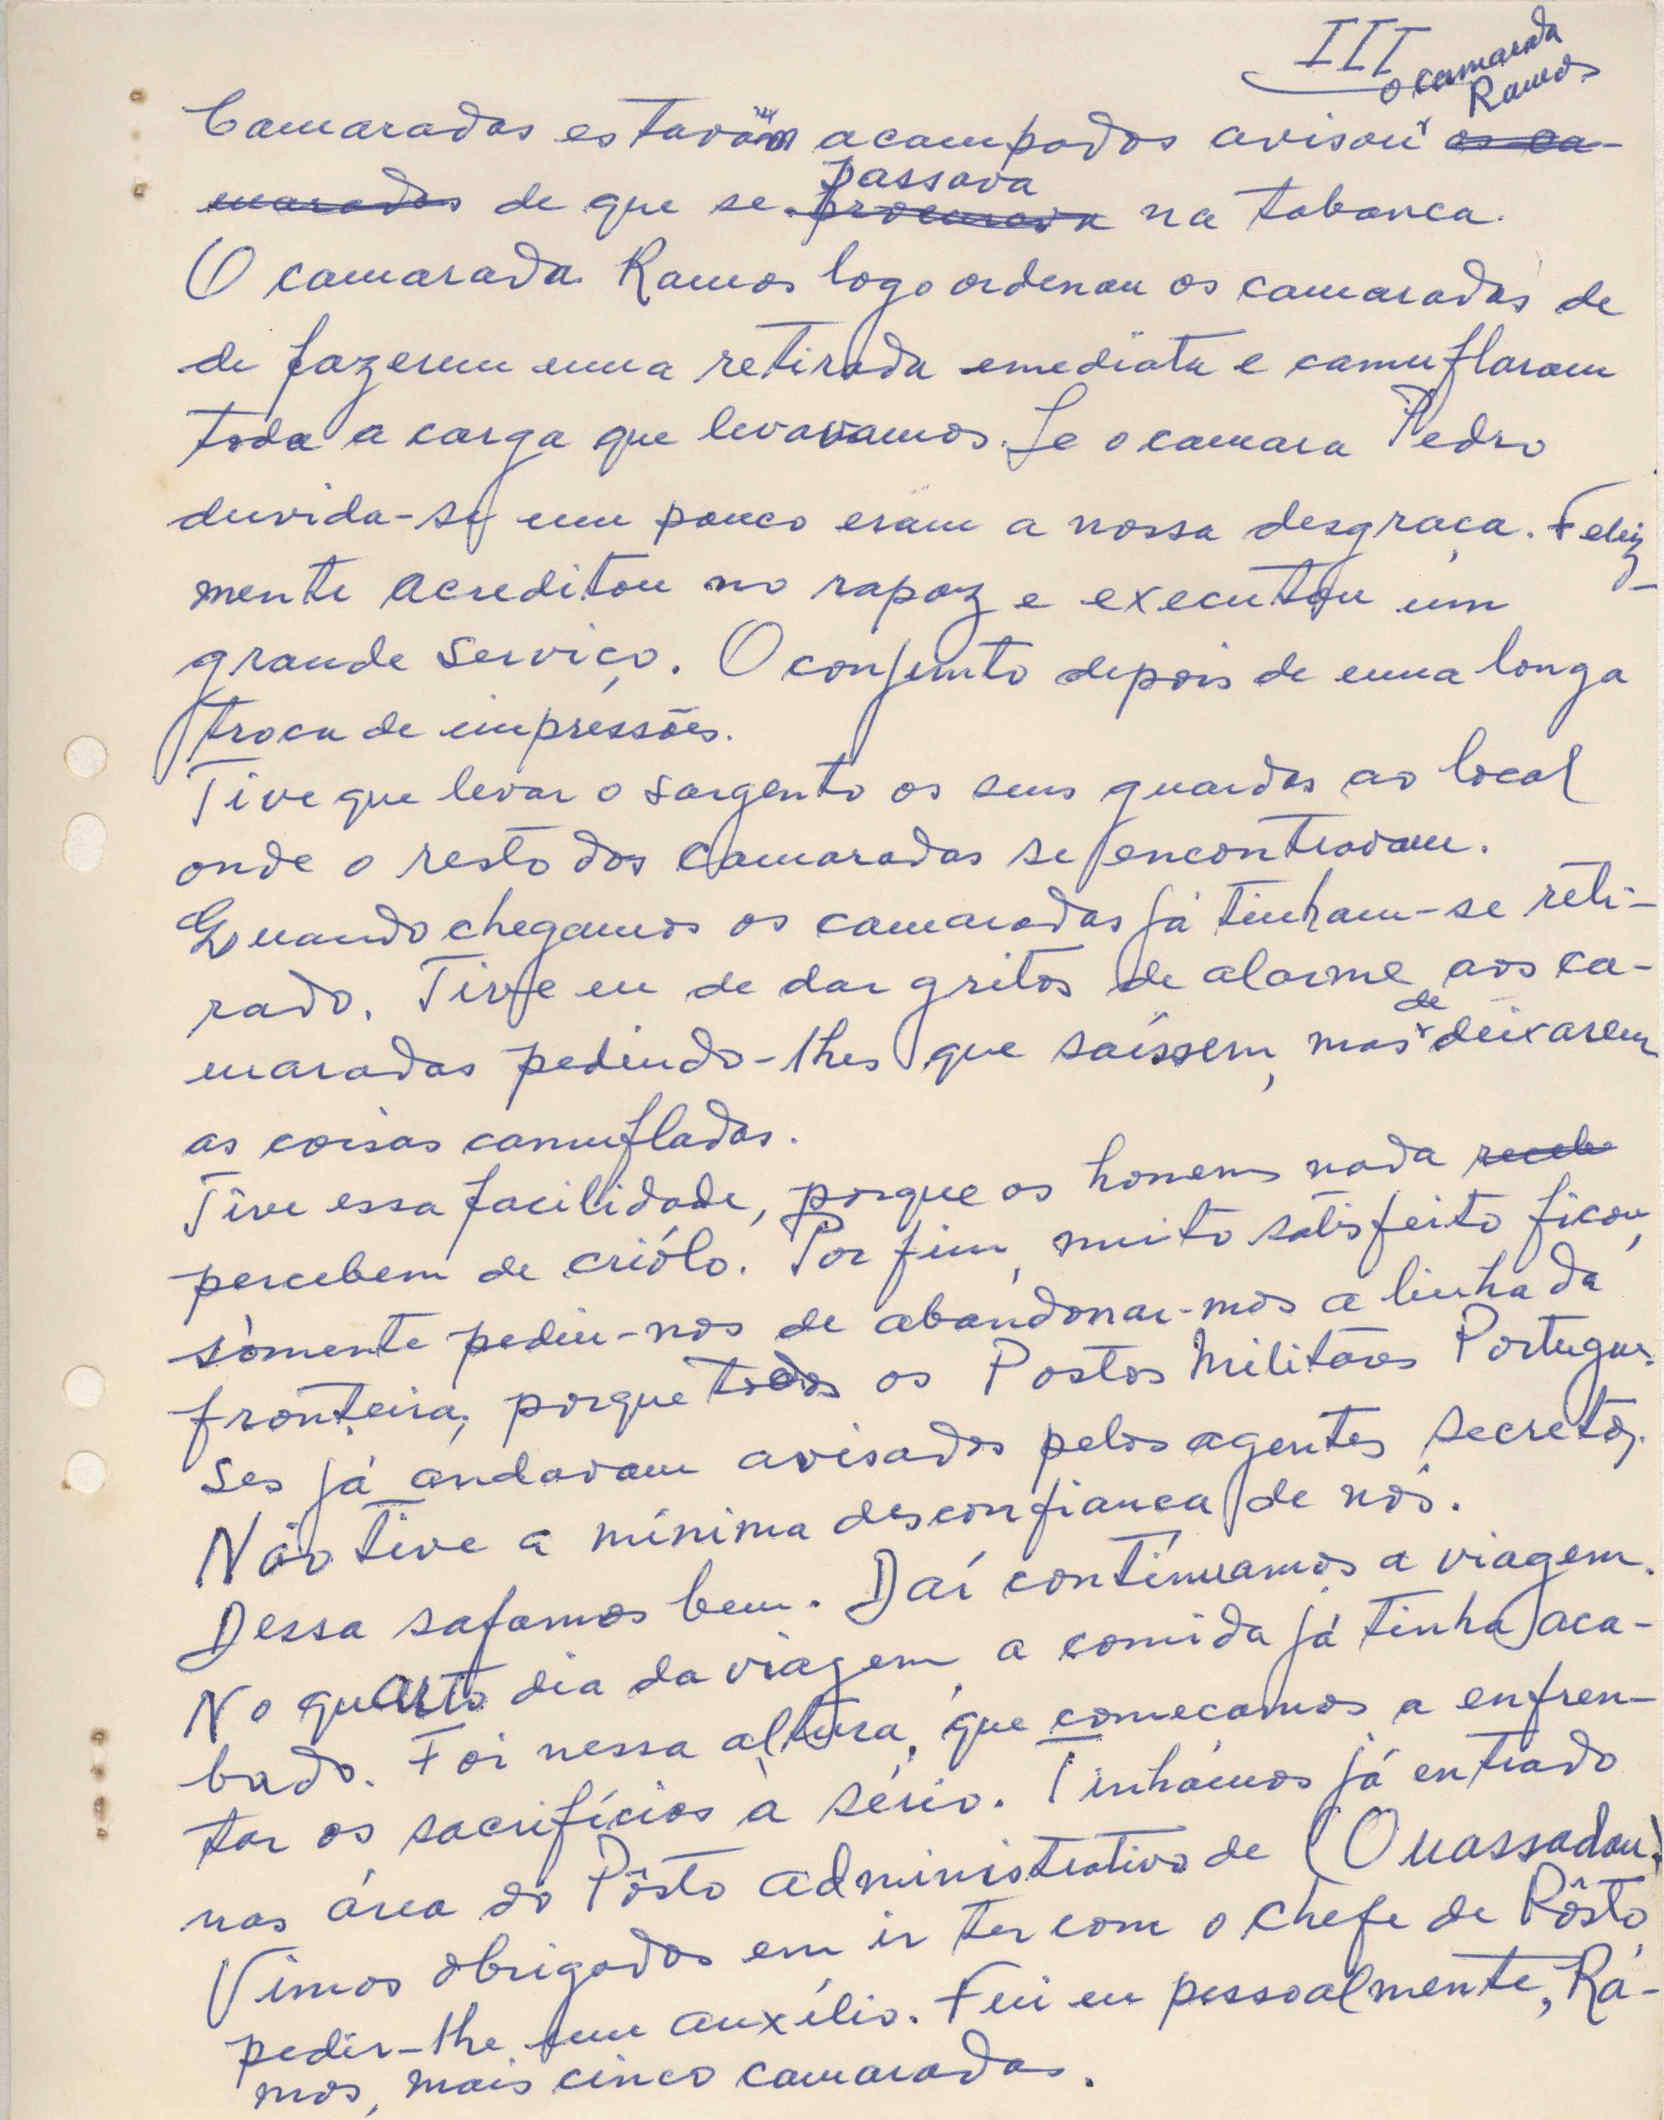 III
o camarada
Ramos
Camaradas estavam acampados avisou os ca-
maradas de que se procurava na tabanca.
passava
O camarada Ramos logo ordenou os camaradas de
de fazerem uma retirada emediata e camuflaram
toda a carga que levavamos. Se o camara Pedro
duvida-se um pouco eram a nossa desgraça. Feliz-
mente acreditou no rapaz e executou um
grande serviço. O conjunto depois de uma longa
troca de impressões.
Tive que levar o sargento os seus guardas ao local
onde o resto dos camaradas se encontravam.
Quando chegamos os camaradas já tinham-se reti-
rado. Tive eu de dar gritos de alarme aos ca-
maradas pedindo-lhes que saíssem, mas de deixarem
as coisas camufladas.
Tive essa facilidade, porque os homens nada recebe
percebem de criólo. Por fim, muito satisfeito ficou,
sòmente pediu-nos de abandonar-mos a linha da
fronteira, porque todos os Postos Militares Portugue-
ses já andavam avisados pelos agentes secretos.
Não tive a mínima desconfiança de nós.
Dessa safamos bem. Daí continuamos a viagem.
No quarto dia da viagem a comida já tinha aca-
bado. Foi nessa altura, que começamos a enfren-
tar os sacrifícios à sério. Tinhámos já entrado
nas área do Pôsto administrativo de (Ouassadou)
Vimos obrigados em ir ter com o chefe de Pôsto
pedir-lhe um auxílio. Fui eu pessoalmente, Rá-
mos, mais cinco camaradas.